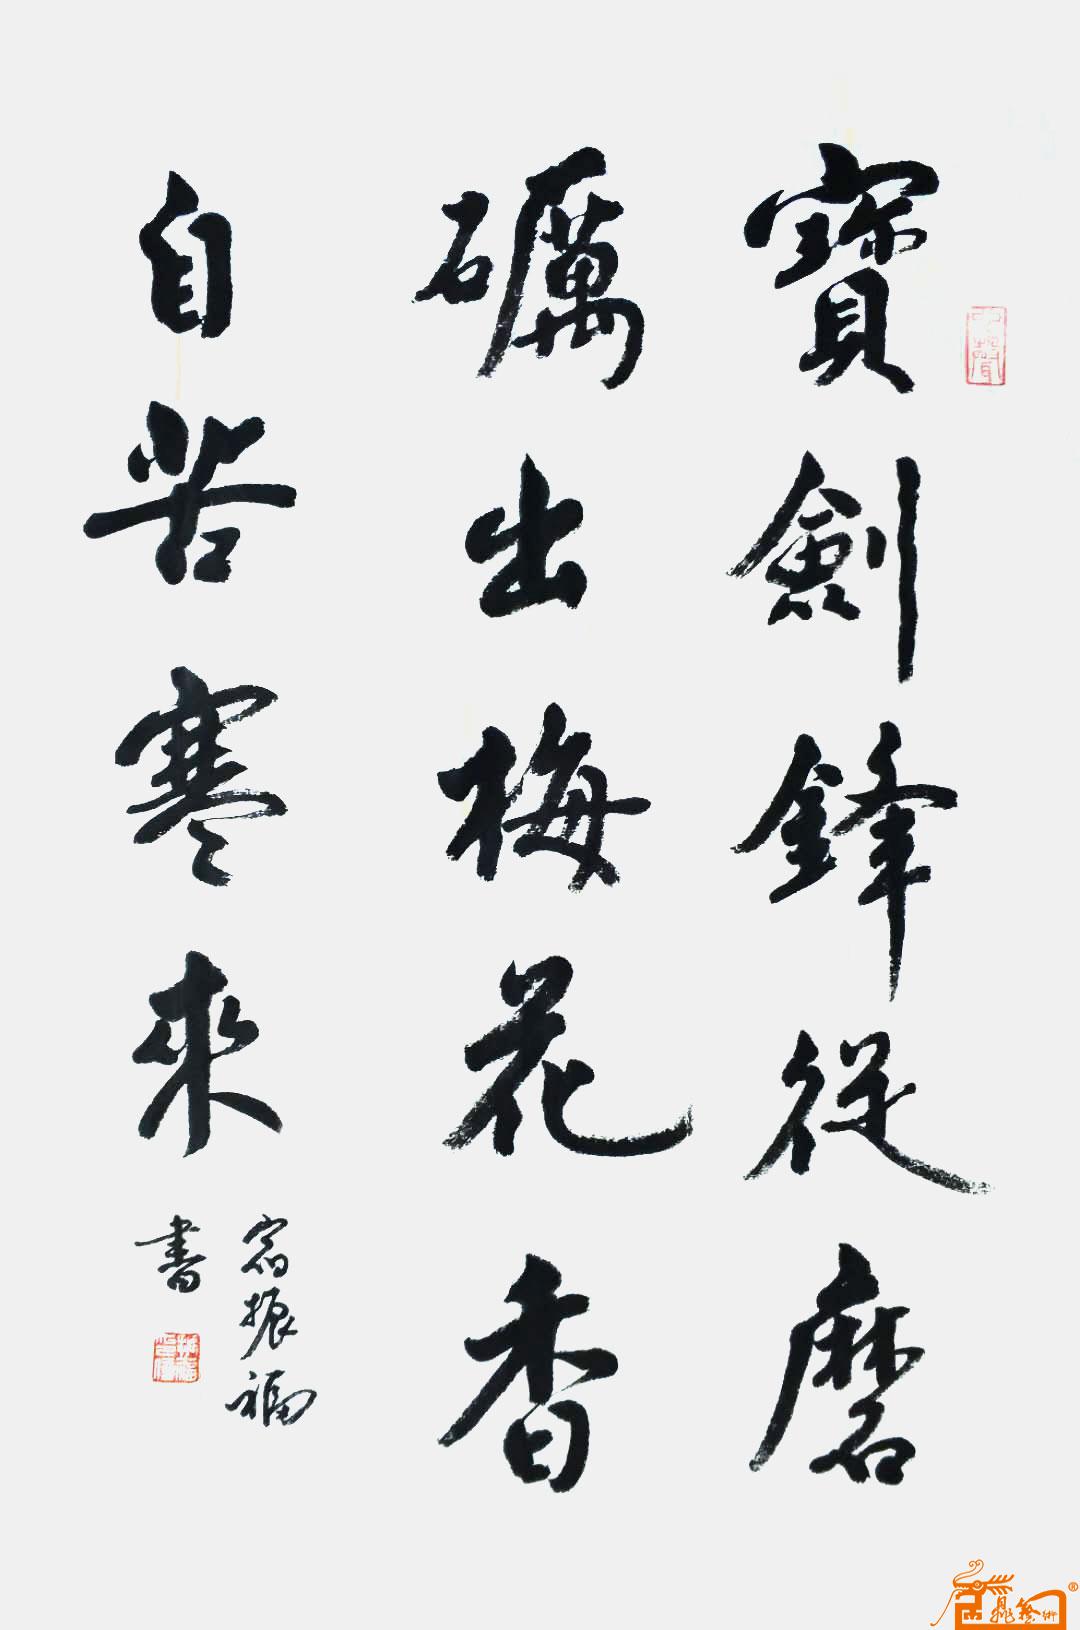 寶劍鋒從磨
礪出梅花香
自苦寒來
宿振福
書